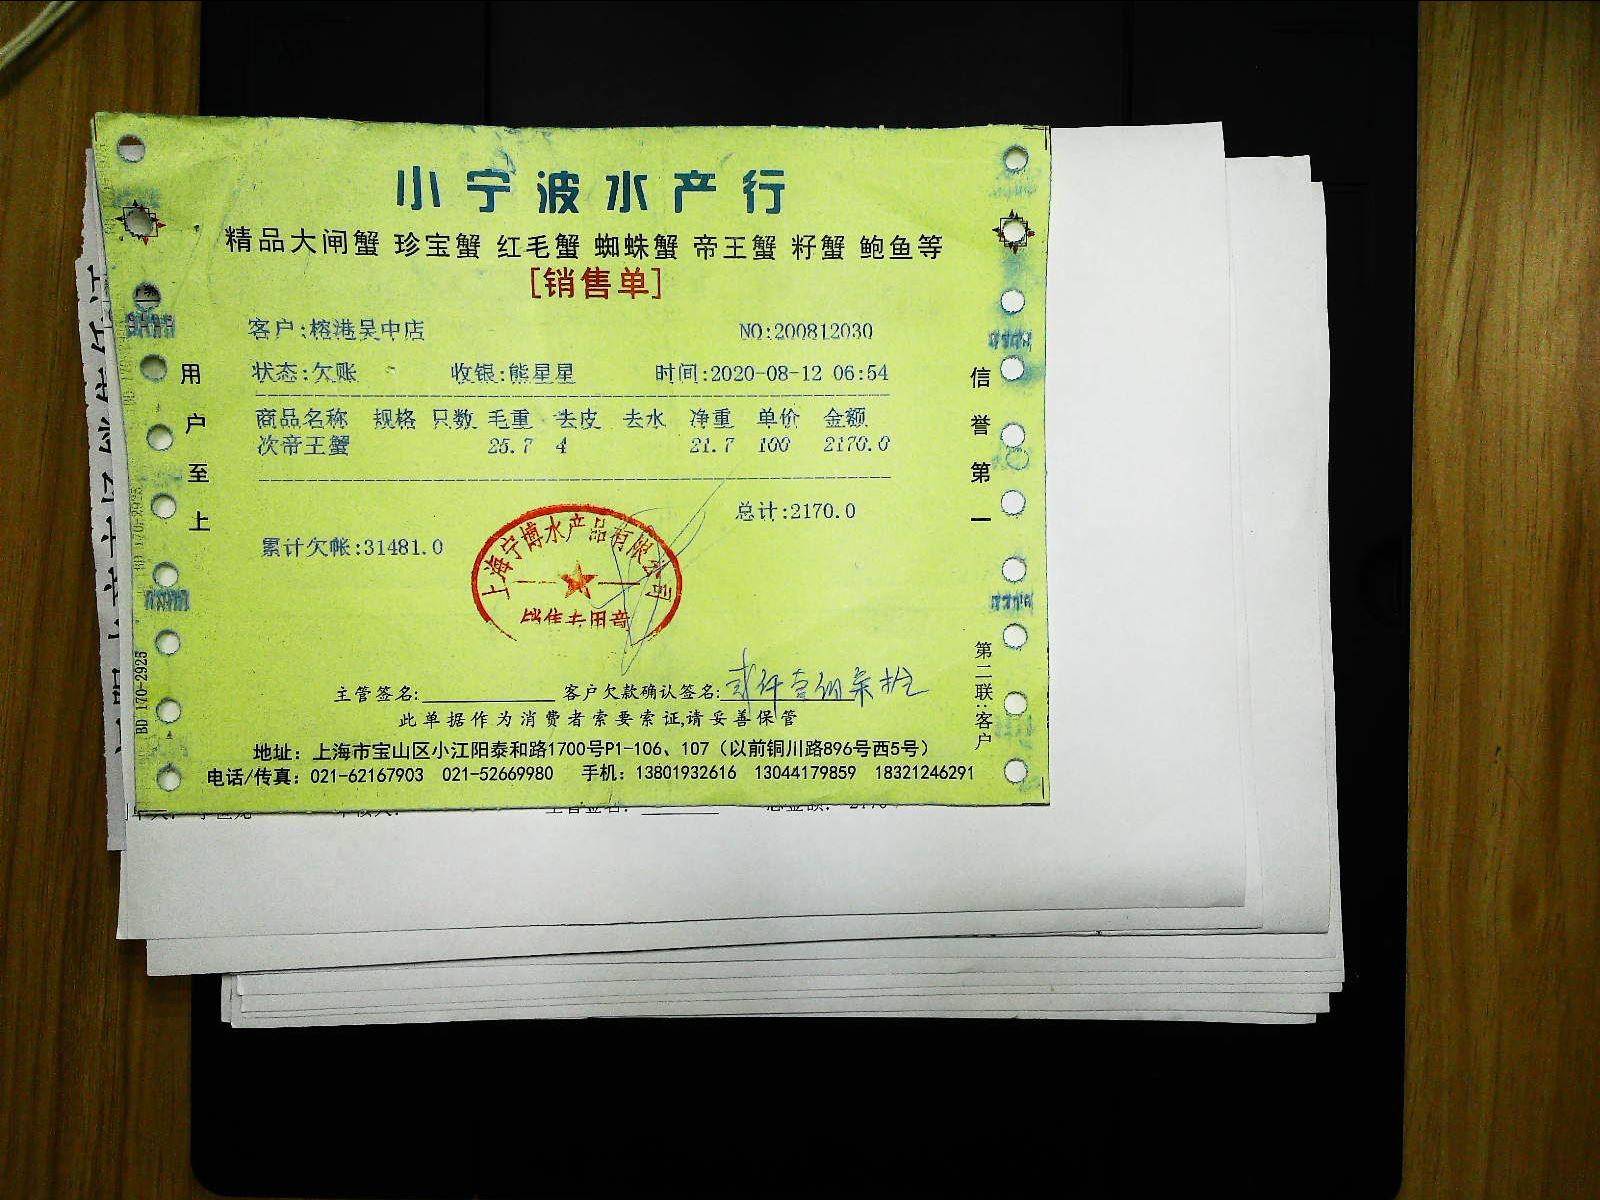 小宁波水产行
精品大闸蟹 珍宝蟹 红毛蟹 蜘蛛蟹 帝王蟹 籽蟹 鲍鱼等
[销售单]
客户:榕港吴中店 NO:200812030
状态:欠账 收银:熊星星 时间:2020-08-12 06:54
商品名称 规格 只数 毛重 去皮 去水 净重 单价 金额
次帝王蟹 25.7 4 21.7 100 2170.0
总计:2170.0
累计欠帐:31481.0
上海宁博水产品有限公司
销售专用章
主管签名: 客户欠款确认签名:
此单据作为消费者索要索证,请妥善保管
地址：上海市宝山区小江阳泰和路1700号P1-106、107（以前铜川路896号西5号）
电话/传真：021-62167903 021-52669980 手机：13801932616 13044179859 18321246291
用户至上
信誉第一
第二联:客户
BD 170-2925